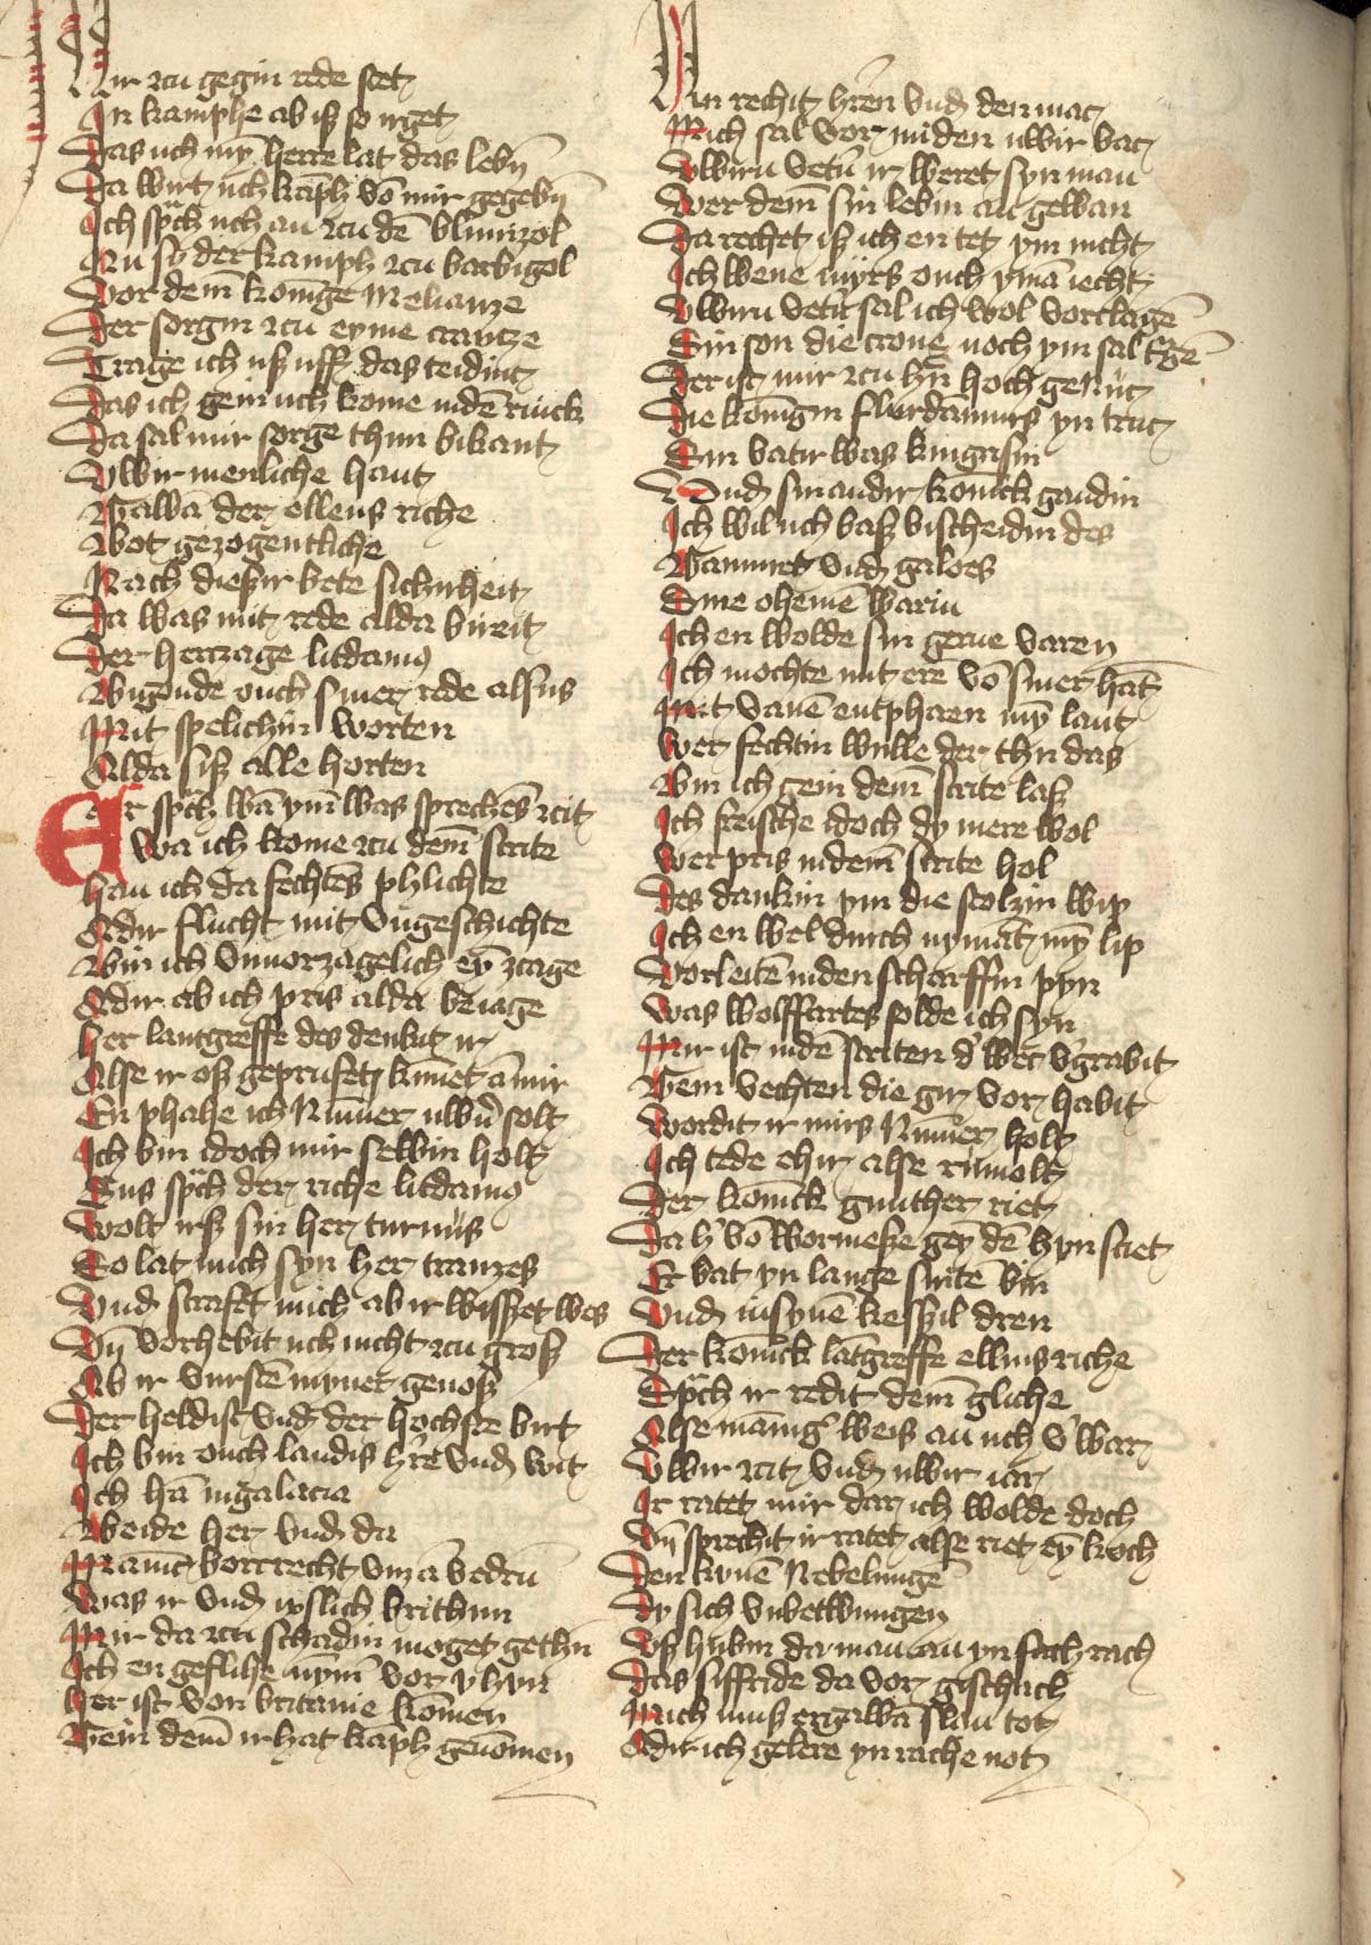 Mir zcu gegin rede stet
In kamphe ab iß so irget
Das uch mȳ herre lat das lebī
Da wirt uch kāph vō mir gegebī
Ich sp̄ch uch an zcu dē blimizol
Nu sy der kamph zcu barbigol
Vor dem̄ konīge Melianze
Der sorgin zcu eyme crantze
Trage ich uß uff das teidinc
Das ich gein uch kome indē rinck
Da sal mir sorge thun bikant
Vwir menliche hant
Gawā der ellens riche
Bot gezogentliche
Nach dießir bete sichirheit
Da was mit rede alda bireit
Der hertzage litdamus
Bigonde ouch siner rede alsus
Mit spelichin worten
Alda siß alle horten
Er sp̄ch wā ym̄ was sprechēs zcit
Wa ich kome zcu dem̄ strite
Han ich da fechtēs phlichte
Adir flucht mit vngeschichte
Bin ich vnuorzagelich eȳ zcage
Adir ab ich pris alda beiage
Her lantgreffe des denkit ir
Alse ir oß geprufet kūnet ā mir
En phahe ich Nūmer uwirn solt
Ich bin idoch mir selbin holt
Sus sp̄ch der riche litdamus
Wolt irß sin her turnus
So lat mich syn her tranzes
Vnd strafet mich ab ir wisszet wes
Vn̄ vorhebit uch nicht zcu groß
Ab ir vurstē mynet genoß
Der heldist vnd der hochste birt
Ich bin ouch landis h're vnd wirt
Ich hā ingalacia
Beide her vnd da
Manic borcrecht vnz ā vedrū
Was ir vnd ixslich brithun
Mir da zcu schadin moget gethun
Ich en geflihe nȳm̄ vor ÿ hyn
Her ist von britanie kōmen
Gein dem̄ ir hat kāph genōmen
Nin rechit h'ren vnd den mac
Mich sal vor miden uwir bac
Vwirn vetir ir weret syn man
Wer dem̄ sin lebin an gewan
Da rechet iß ich en tet ym nicht
Ich wene myrs ouch ymā iecht
Vwirn vetir sal ich wol vorclagē
Sin son die crone noch ym sal tragē
Der ist mir zcu h'rn hoch genuc
Die konīgin flurdāmurs yn truc
Sin vatir was kingrisin
Vnd sin andir konīck gandin
Ich wil uch baß bischeidin des
Gamuret vnd galoes
Sine ohemē warin
Ich en wolde sin gerne varen
Ich mochte mit ere vō siner hāt
Mit vanē entphaen mȳ lant
Wer fechtin wulle der thu das
Bin ich gein dem̄ strite laß
Ich freische idoch dy mere wol
Wer pris indem̄ strite hol
Des dankin ym die stolzin wip
Ich en wel durch nymāt mȳ lip
Vorleitē inden scharffin pyn
Was wolffartes solde ich syn
Mir ist indē striten d' wec v'grabit
Gein vechten die gir vor habit
Wordit ir mirs Nūmer holt
Ich tede ehir alse rumolt
Der konīck gunther riet
Da h' vō wormeße geȳ dē hyn sciet
Er bat yn lange snitē bin
Vnd in synē kesszil dren
Der konīck lātgreffe ellins riche
Sp̄ch ir redit dem̄ gliche
Alse manig' weis an uch v'war
Vwir zcit vnd uwir iar
Ir ratet mir dar ich wolde doch
Vn̄ sprechit ir ratet alse riet eȳ koch
Den kunē Nebelungē
Dy sich vnbetwungen
Vß hubin da man an yn sich rach
Das siffride da vor gischach
Mich muß er gawā slan tot
Adir ich gelere yn rache not